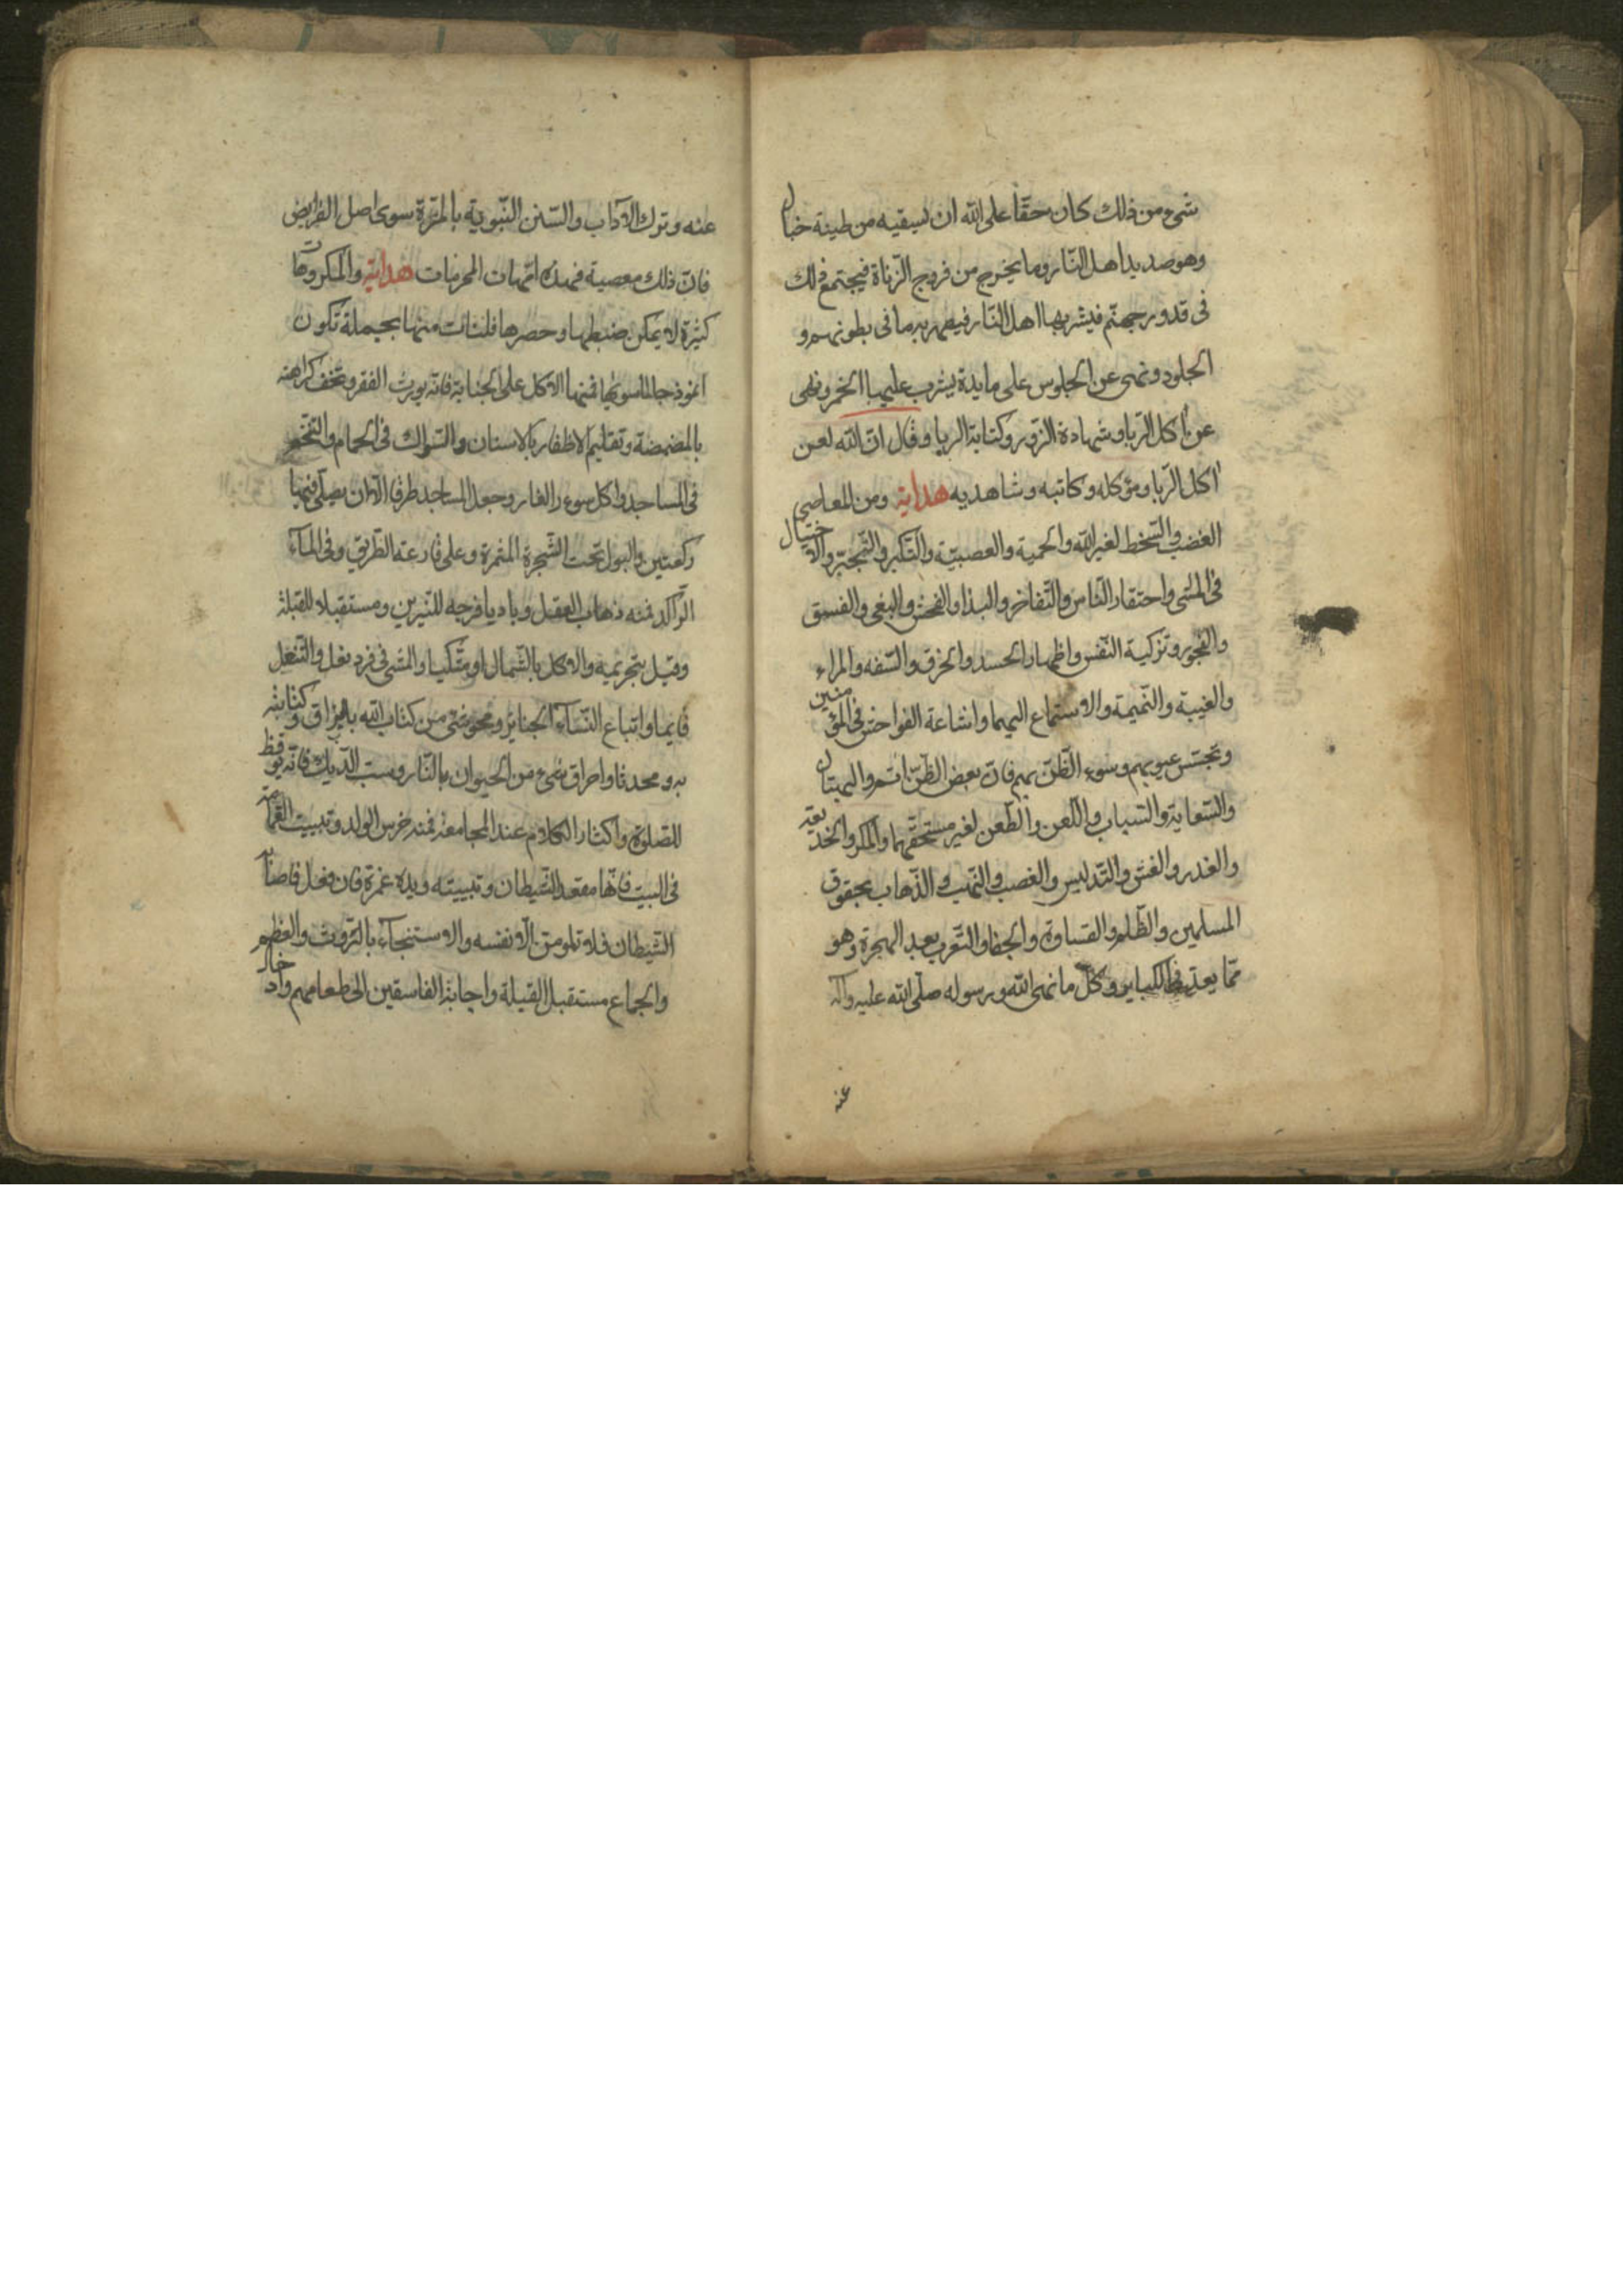 شیء من ذلك كان حقّا علی الله ان یسقیه من طینة خبال
وهو صدید اهل النّار وما یخرج من فروج الزّناة فیجتمع ذلك
فی قدور جهنّم فیشربها اهل النّار فیصهر به ما فی بطونهم و
الجلود ونهی عن الجلوس علی مایدة یشرب علیها الخمر ونهی
عن اكل الربا وشهادة الزّور وكتابة الربا وقال انّ الله لعن
اكل الرّبا ومؤكله وكاتبه وشاهدیه هدایة ومن المعاصی
الغضب والسّخط لغیر الله والحمیة والعصبیّة والتّكبر والتّجبّر والاختیال
فی المشی واحتقار النّاس والتّفاخر والبذا والفحش والبغی والفسق
والفجور وتزكیة النّفس واظهار الحسد والخرق والسّفه والمراء
والغیبة والنّمیمة والاستماع الیهما واشاعة الفواحش فی المؤمنین
وتجسّس عیوبهم وسوء الظّنّ بهم فانّ بعض الظّنّ اثم والبهتان
والسّعایة والسّباب واللّعن والطّعن لغیر مستحقّهما والمكر والخدیعة
والغدر والغش والتّدلیس والغصب والنّهب والذّهاب بحقوق
المسلمین والظّلم والقساوة والجفا والتّعرب بعد الهجرة وهو
ممّا یعد فی الكبایر وكلّ ما نهی الله ورسوله صلّی الله علیه وآله
عنه
عنه وترك الآداب والسّنن النّبویة بالمرّة سوی اصل الفرایض
فانّ ذلك معصیة فهذه امّهات المحرمات هدایة والمكروهات
كثیرة لا یمكن ضبطها وحصرها فلنات منها بجملة تكون
انموذجا لما سویها فمنها الاكل علی الجنابة فانّه یورث الفقر وتخف كراهته
بالمضمضة وتقلیم الاظفار بالاسنان والسّواك فی الحمام والتّنخّم
فی المساجد واكل سوء ر الفار وجعل المساجد طرقا الّا ان یصلّی فیها
ركعتین والبول تحت الشّجرة المثمرة وعلی قارعة الطّریق وفی المآء
الرّاكد فمنه ذهاب العقل وبادیا فرجه للنّیرین ومستقبلا للقبلة
وقیل بتحریمه والاكل بالشّمال او متّكیا والمشی فی فرد نعل والتّنعل
قایما واتباع النّسآء الجنایز ومحو شیء من كتاب الله بالبزاق وكتابته
به ومحدثا واحراق شیء من الحیوان بالنّار وسبّ الدّیك فانّه یوقظ
للصّلوة واكثار الكلام عند المجامعة فمنه خرس الولد وتبییت القمامة
فی البیت فانّها مقعد الشّیطان وتبییته ویده غمرة فان فعل فاصابه
الشّیطان فلا یلومنّ الّا نفسه والاستنجآء بالرّوث والعظم
والجماع مستقبل القبلة واجابة الفاسقین الی طعامهم وادخال